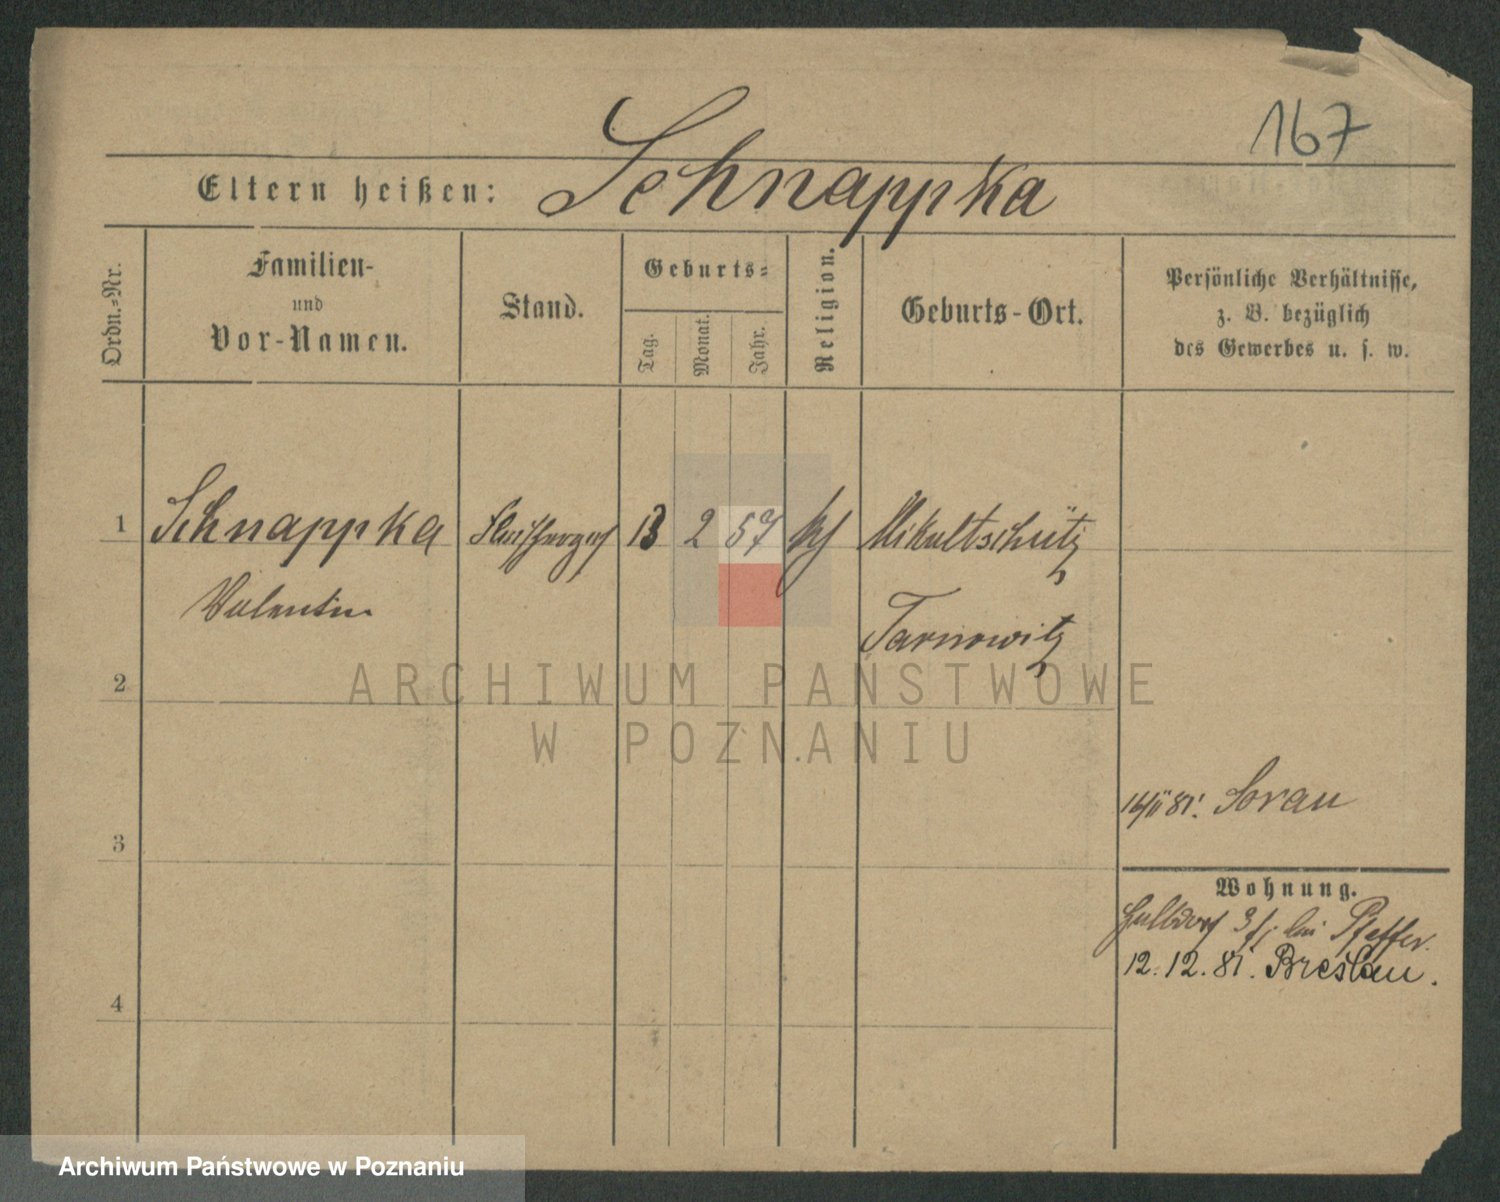 167
Eltern heißen: Schnappka
Ordn.-Nr.
Familien-
und
Vor-Namen.
Stand.
Geburts-
Tag.
Monat.
Jahr.
Religion.
Geburts-Ort.
Persönliche Verhältnisse,
z. B. bezüglich
des Gewerbes u. s. w.
1 Schnappka 13 2 57 Mikultschütz
Valentin
Tarnowitz
2
ARCHIWUM PAŃSTWOWE
W POZNANIU
16/II 81. Sorau
3
Wohnung.
bei Pfeffer.
12.12.81. Breslau.
4
Archiwum Państwowe w Poznaniu